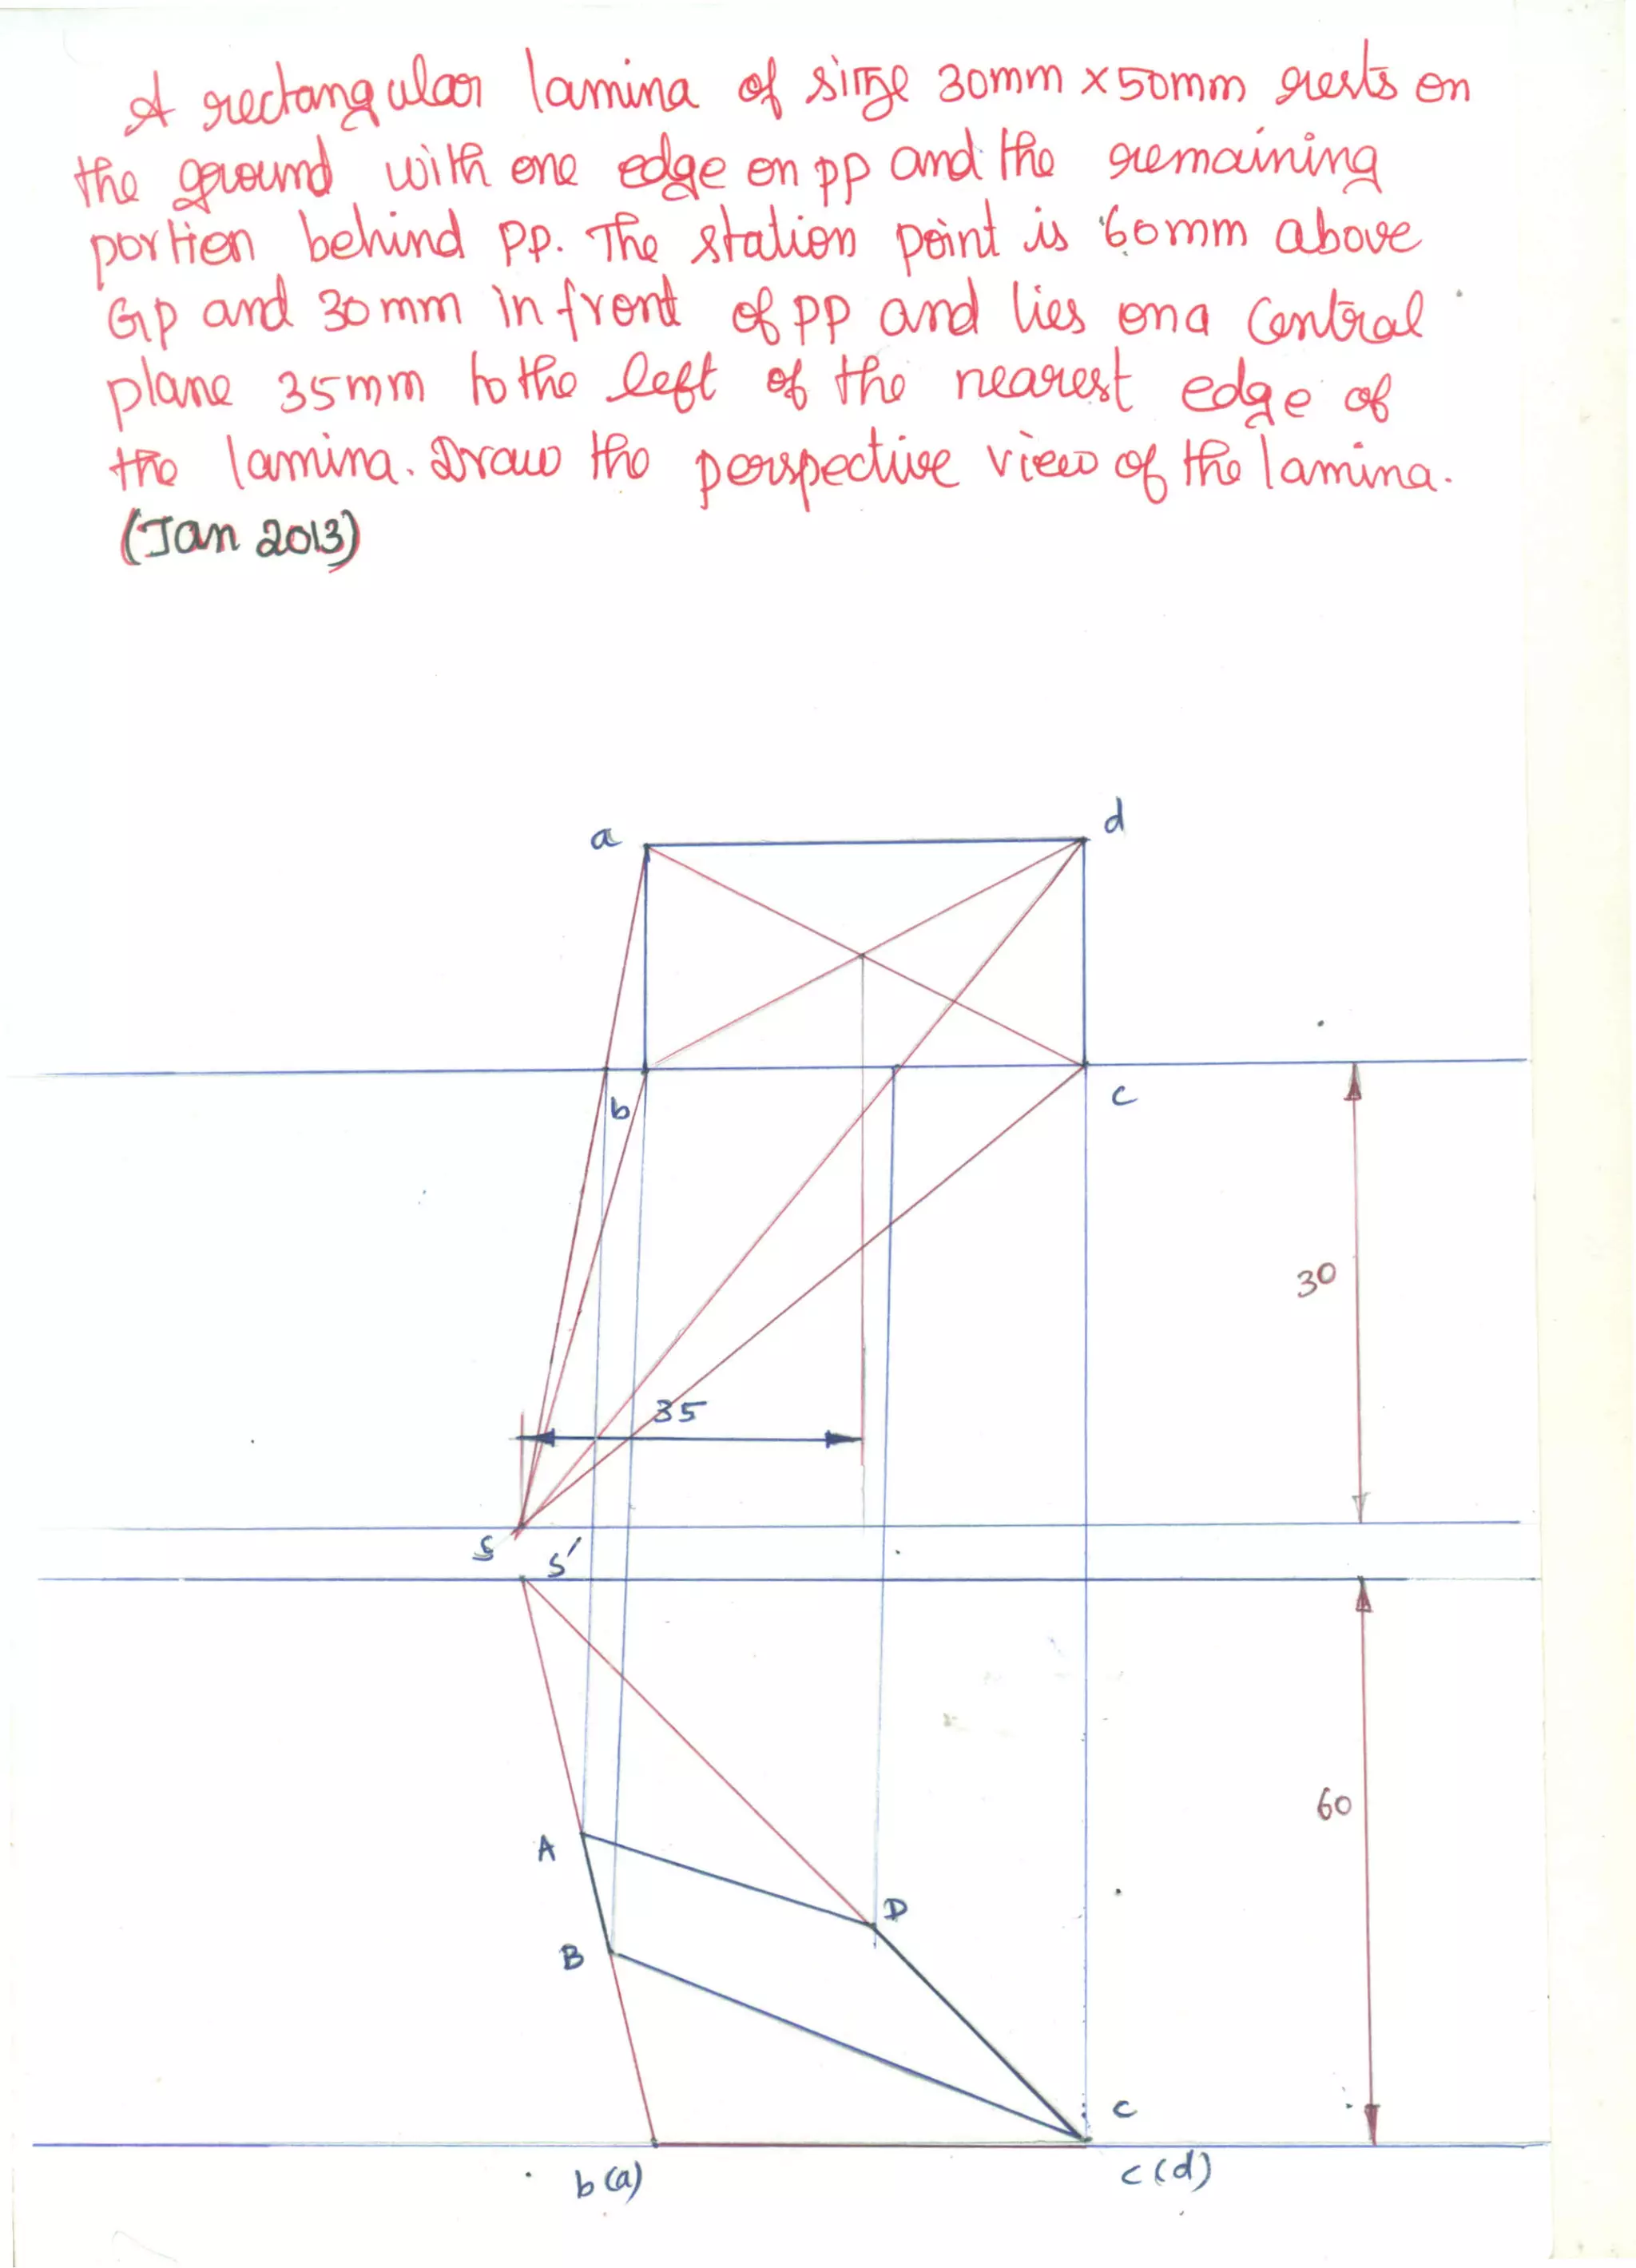 A rectangular lamina of size 30mm x 50mm rests on
the ground with one edge on pp and the remaining
portion behind PP. The station point is 60mm above
GP and 30mm in front of PP and lies on a Central
plane 35mm to the left of the nearest edge of
the lamina. Draw the perspective view of the lamina.
(Jan 2013)
a d
b c
30
35
s s'
60
A
D
B
c
b(a) c(d)